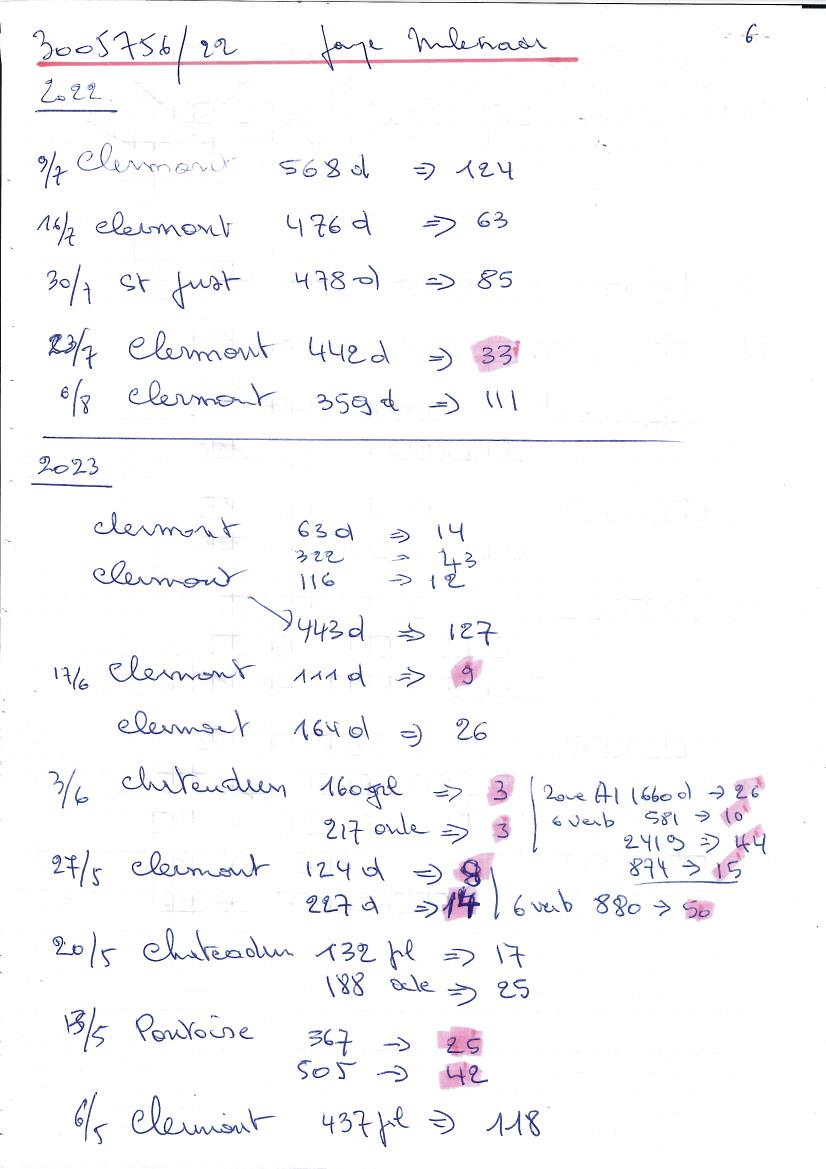 3005756/22 - 6 -
2022
9/7 Clermont 568 d => 124
16/7 clermont 476 d => 63
30/7 St Just 478 d => 85
23/7 Clermont 442 d => 33
6/8 Clermont 359 d => 111
2023
clermont 63 d => 14
322 = 43
clermont 116 => 12
443 d => 127
17/6 Clermont 111 d => 9
clermont 164 d => 26
3/6 160 => 3 Zone A1 1660 d -> 26
217 => 3 6 verb 581 -> 10
2419 => 44
27/5 Clermont 124 d => 8 874 -> 15
227 d => 14 6 verb 880 -> 50
20/5 132 jl => 17
188 => 25
13/5 Pontoise 367 -> 25
505 -> 42
6/5 Clermont 437 jl => 118